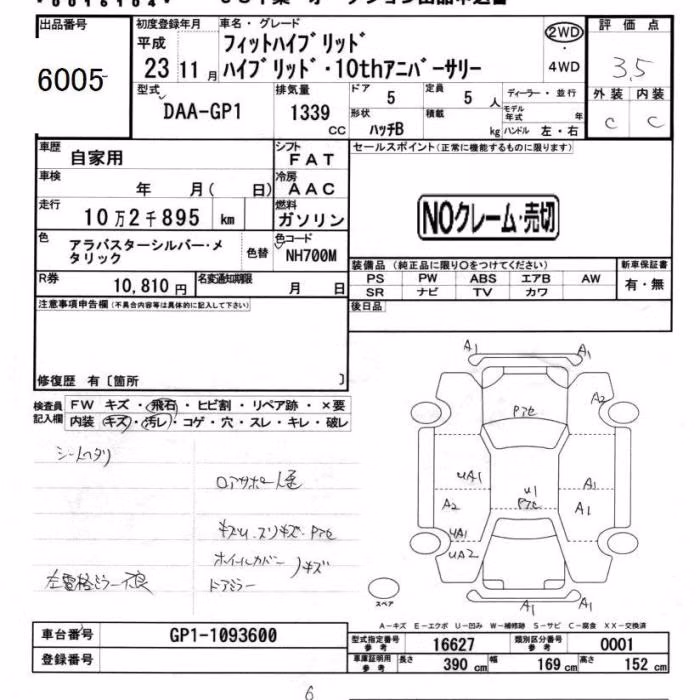 出品番号
6005
初度登録年月
平成
23 11月
車名・グレード
フィットハイブリッド
ハイブリッド・10thアニバーサリー
2WD
・
4WD
評価点
3.5
外装 内装
C C
型式
DAA-GP1
排気量
1339
CC
ドア 5
定員 5 人
形状
ハッチB
積載 kg
ディーラー・並行
モデル年式 年
ハンドル 左・右
車歴
自家用
シフト
FAT
車検
年 月( 日)
冷房
AAC
走行
10万2千895 km
燃料
ガソリン
色
アラバスターシルバー・メ
タリック
色替
色コード
NH700M
R券
10,810円
名変通知期限
月 日
セールスポイント(正常に機能するものに限ります)
NOクレーム・売切
装備品(純正品に限り○をつけてください)
PS PW ABS エアB AW
SR ナビ TV カワ
新車保証書
有・無
後日品
注意事項申告欄(不具合内容等は具体的に記入して下さい)
修復歴 有〔箇所 〕
検査員
記入欄
FW キズ・飛石・ヒビ割・リペア跡・×要
内装 キズ・汚レ・コゲ・穴・スレ・キレ・破レ
シートヘタリ
ロアサポート歪
キズU.スリキズ.Pアセ
ホイールカバー
ドアミラー
キズ
左電格ミラー不良
A1
A1
Pアセ
A2
UA1
A2
U1
Pアセ
A1
A1
UA1
UA2
A1
A1
スペア
A-キズ E-エクボ U-凹み W-補修跡 S-サビ C-腐食 XX-交換済
車台番号
GP1-1093600
登録番号
型式指定番号
参考
16627
類別区分番号
参考
0001
車庫証明用
参考
長さ 390 cm
幅 169 cm
高さ 152 cm
6